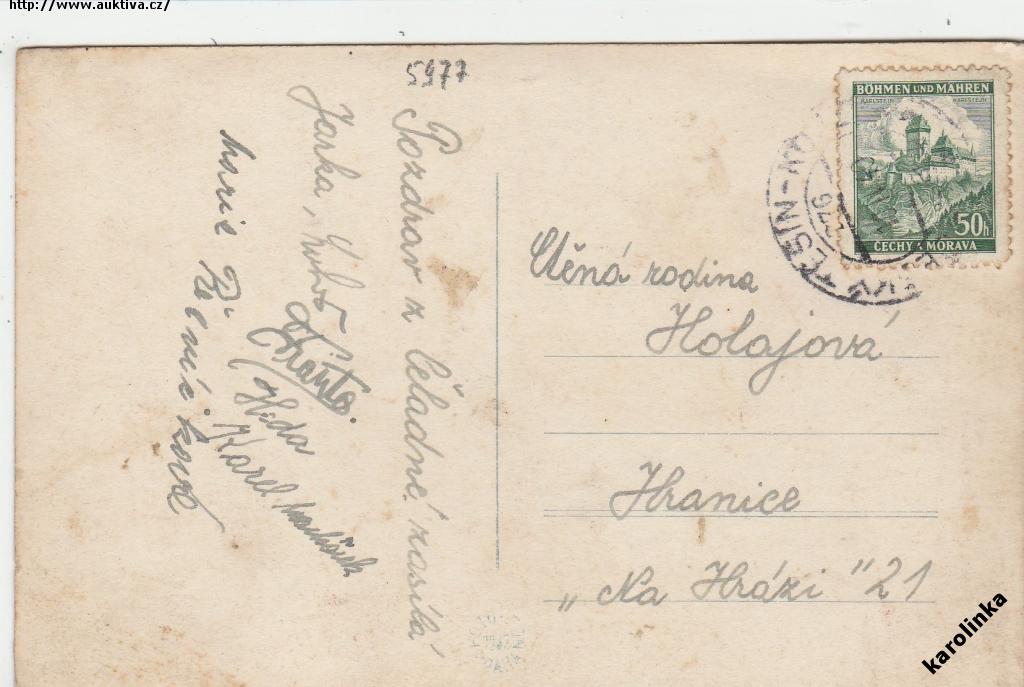 http://www.auktiva.cz/
5977
Pozdrav z Čeladné zasílá
Jarka,
Franta.
Vlida
Karel
Marie
BÖHMEN UND MÄHREN
KARLSTEIN KARLŠTEJN
50h
ČECHY A MORAVA
Ctěná rodina
Holajová
Hranice
„Na Hrázi“ 21
karolinka